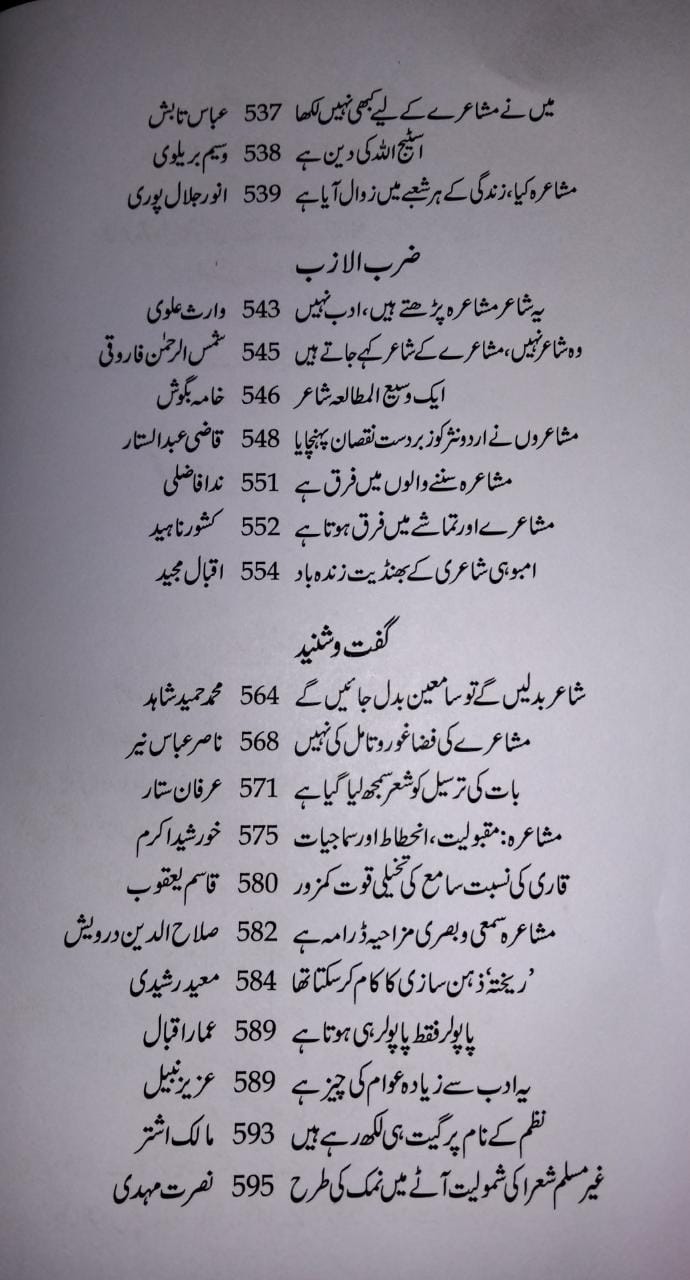 میں نے مشاعرے کے لیے کبھی نہیں لکھا 537 عباس تابش
اسٹیج اللہ کی دین ہے 538 وسیم بریلوی
مشاعرہ کیا، زندگی کے ہر شعبے میں زوال آیا ہے 539 انور جلال پوری
ضرب الازب
یہ شاعر مشاعرہ پڑھتے ہیں، ادب نہیں 543 وارث علوی
وہ شاعر نہیں، مشاعرے کے شاعر کہے جاتے ہیں 545 شمس الرحمٰن فاروقی
ایک وسیع المطالعہ شاعر 546 خامہ بگوش
مشاعروں نے اردو نثر کو زبردست نقصان پہنچایا 548 قاضی عبدالستار
مشاعرہ سننے والوں میں فرق ہے 551 ندا فاضلی
مشاعرے اور تماشے میں فرق ہوتا ہے 552 کشور ناہید
امبوہی شاعری کے بھنڈیت زندہ باد 554 اقبال مجید
گفت و شنید
شاعر بدلیں گے تو سامعین بدل جائیں گے 564 محمد حمید شاہد
مشاعرے کی فضا غور و تامل کی نہیں 568 ناصر عباس نیر
بات کی ترسیل کو شعر سمجھ لیا گیا ہے 571 عرفان ستار
مشاعرہ: مقبولیت، انحطاط اور سماجیات 575 خورشید اکرم
قاری کی نسبت سامع کی تخیلی قوت کمزور 580 قاسم یعقوب
مشاعرہ سمعی و بصری مزاحیہ ڈرامہ ہے 582 صلاح الدین درویش
’ریختہ‘ ذہن سازی کا کام کر سکتا تھا 584 معید رشیدی
پاپولر فقط پاپولر ہی ہوتا ہے 589 عمار اقبال
یہ ادب سے زیادہ عوام کی چیز ہے 589 عزیز نبیل
نظم کے نام پر گیت ہی لکھ رہے ہیں 593 مالک اشتر
غیر مسلم شعرا کی شمولیت آٹے میں نمک کی طرح 595 نصرت مہدی